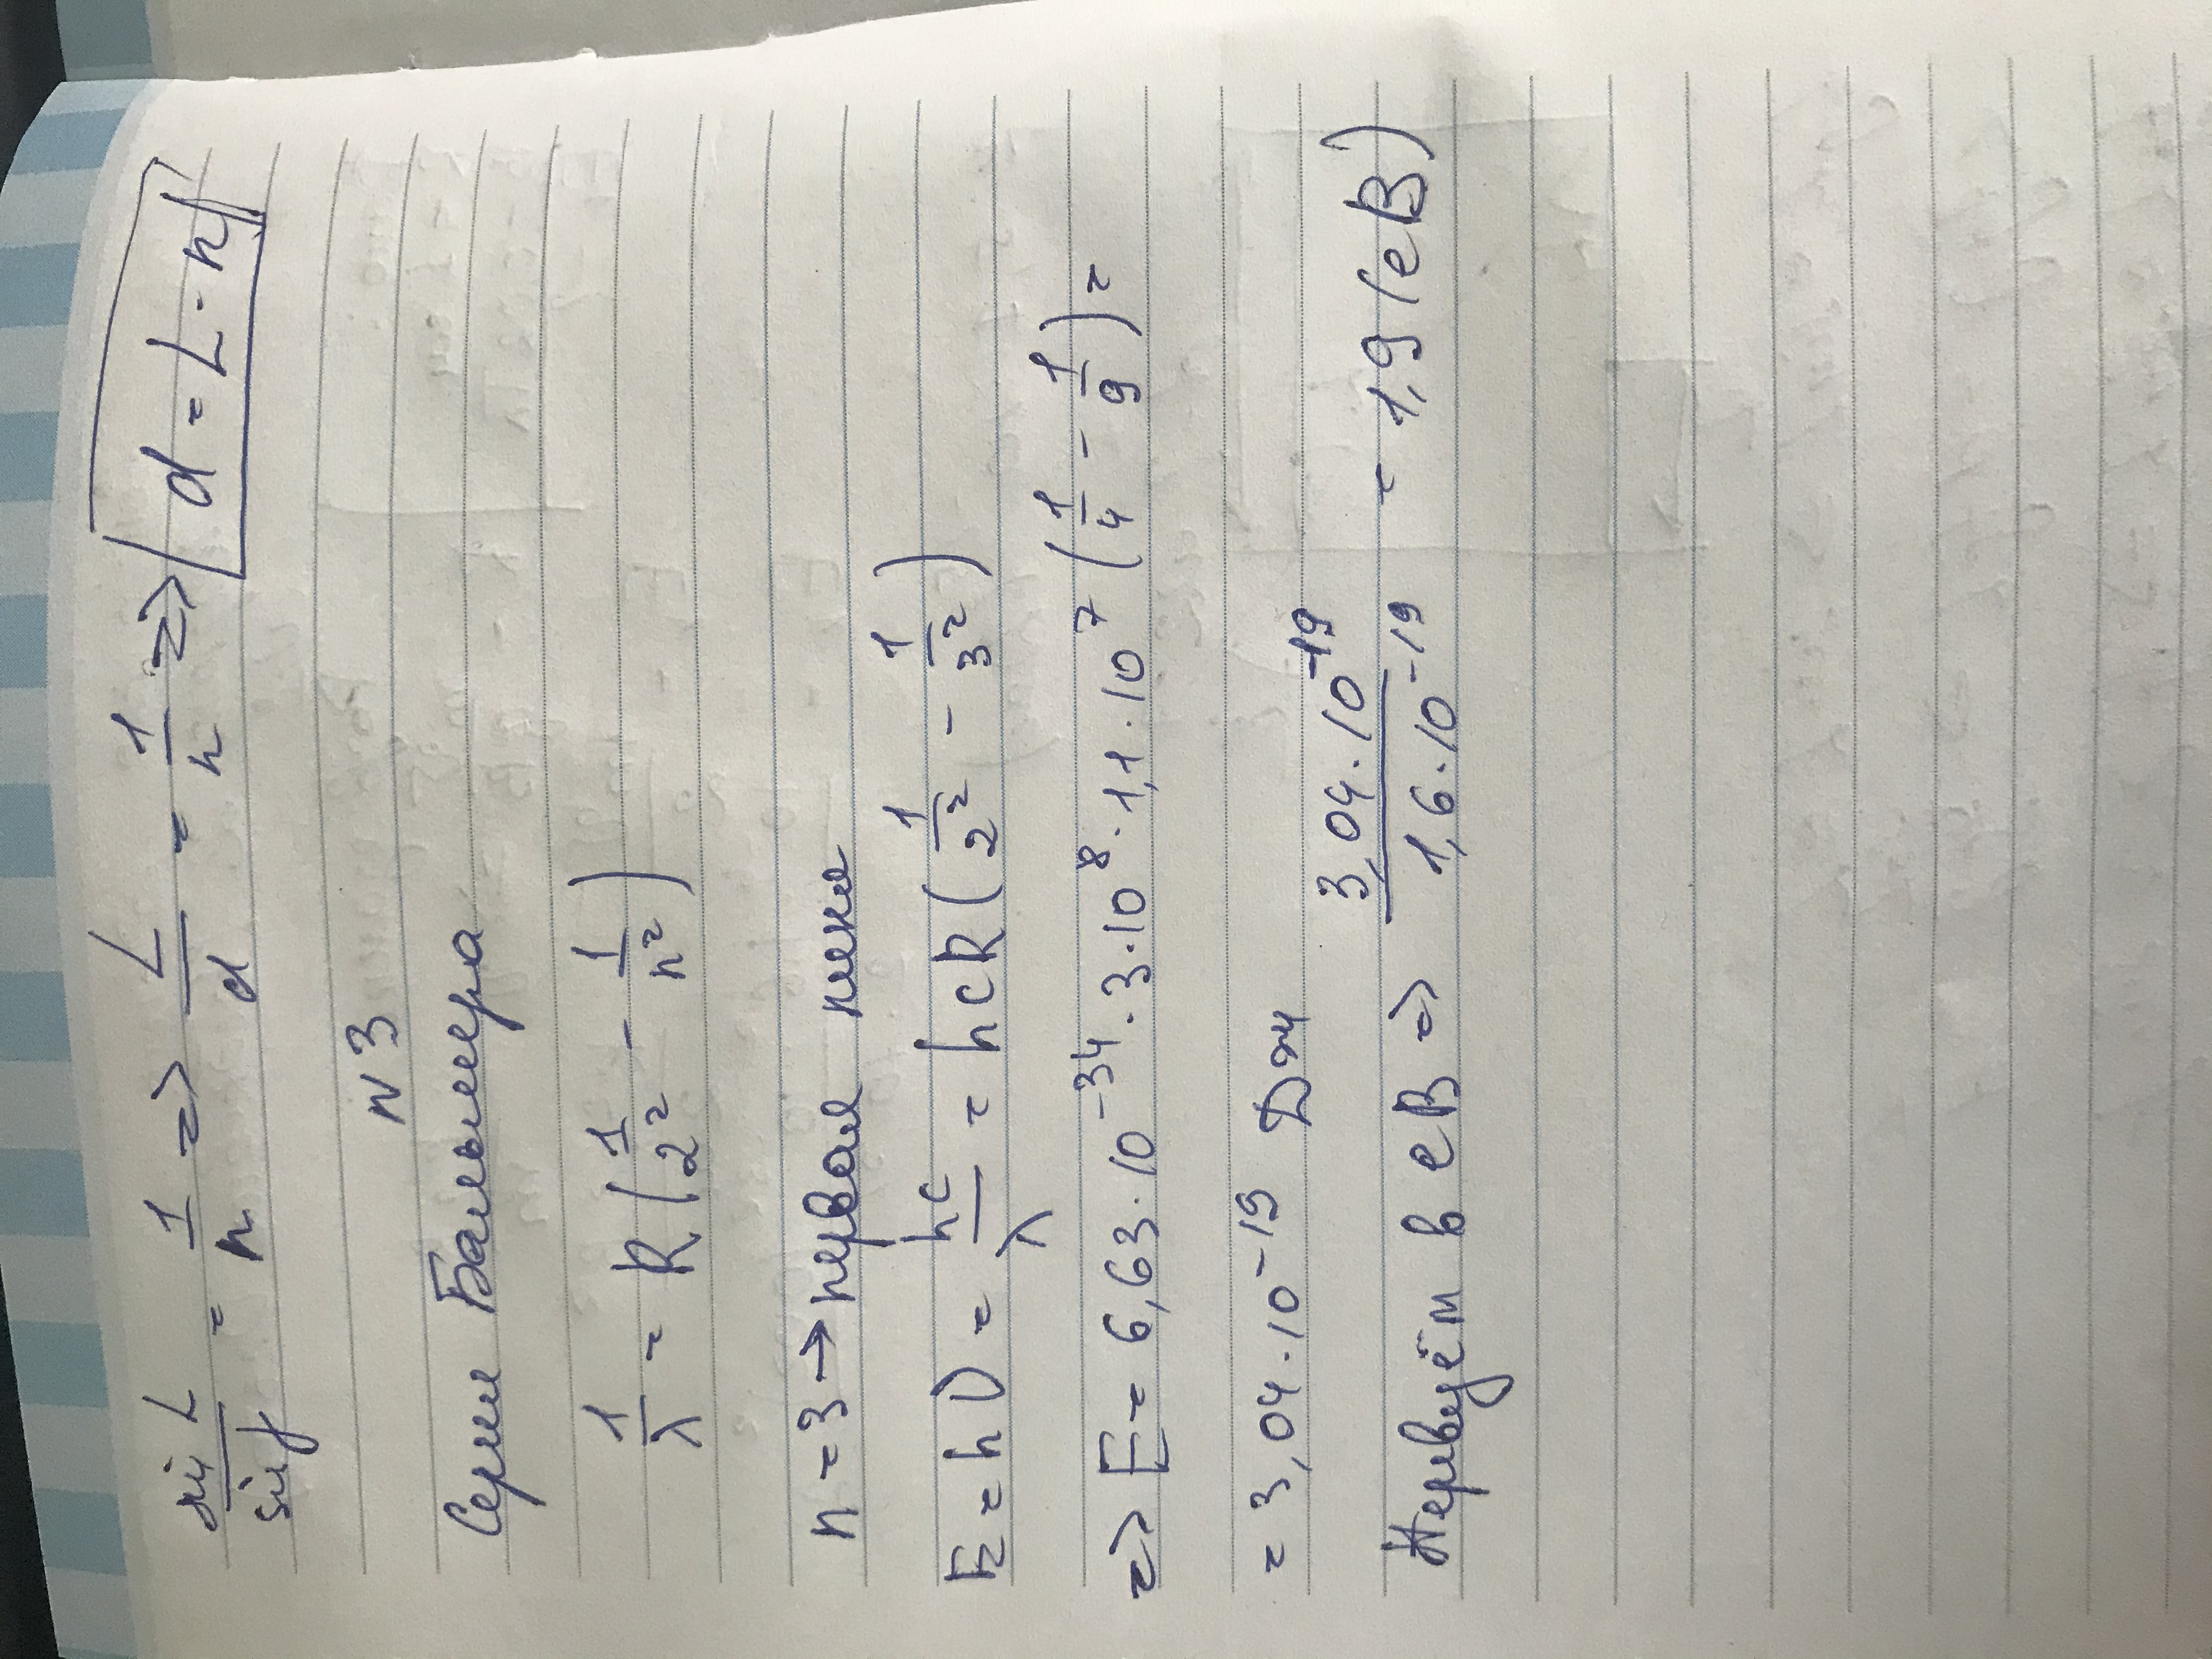 sin L / sin γ = 1/n => L/d = 1/n => d = L · n
N 3
Серия Бальмера
1/λ = R (1/2² - 1/n²)
n = 3 → первая линия
E = hν = hc/λ = hcR (1/2² - 1/3²)
=> E = 6,63 · 10⁻³⁴ · 3 · 10⁸ · 1,1 · 10⁷ (1/4 - 1/9) =
= 3,04 · 10⁻¹⁹ Дж
в eВ => 3,04 · 10⁻¹⁹ / 1,6 · 10⁻¹⁹ = 1,9 (eВ)